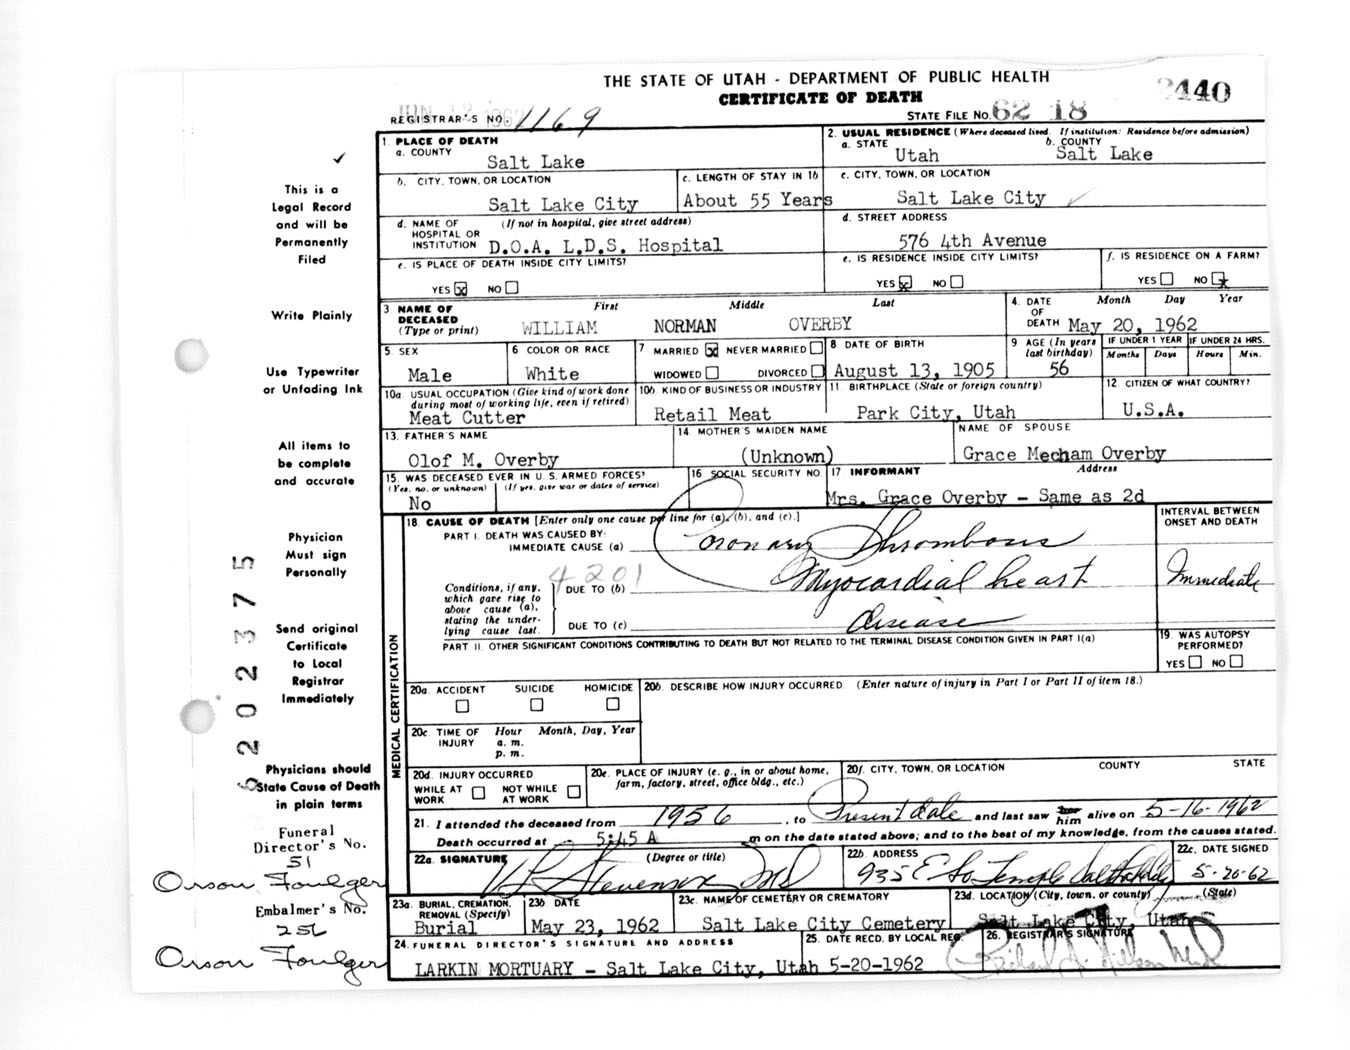 THE STATE OF UTAH - DEPARTMENT OF PUBLIC HEALTH
2440
CERTIFICATE OF DEATH
REGISTRAR'S NO. 1169
STATE FILE NO. 62 18
1. PLACE OF DEATH
a. COUNTY
Salt Lake
2. USUAL RESIDENCE (Where deceased lived. If institution: Residence before admission)
a. STATE
Utah
b. COUNTY
Salt Lake
b. CITY, TOWN, OR LOCATION
Salt Lake City
c. LENGTH OF STAY IN 1b
About 55 Years
c. CITY, TOWN, OR LOCATION
Salt Lake City
d. NAME OF HOSPITAL OR INSTITUTION (If not in hospital, give street address)
D.O.A. L.D.S. Hospital
d. STREET ADDRESS
576 4th Avenue
e. IS PLACE OF DEATH INSIDE CITY LIMITS?
YES x NO
e. IS RESIDENCE INSIDE CITY LIMITS?
YES x NO
f. IS RESIDENCE ON A FARM?
YES NO x
3 NAME OF DECEASED (Type or print)
First Middle Last
WILLIAM NORMAN OVERBY
4. DATE OF DEATH Month Day Year
May 20, 1962
5. SEX
Male
6 COLOR OR RACE
White
7 MARRIED x NEVER MARRIED
WIDOWED DIVORCED
8 DATE OF BIRTH
August 13, 1905
9 AGE (In years last birthday)
56
IF UNDER 1 YEAR IF UNDER 24 HRS.
Months Days Hours Min.
10a. USUAL OCCUPATION (Give kind of work done during most of working life, even if retired)
Meat Cutter
10b. KIND OF BUSINESS OR INDUSTRY
Retail Meat
11 BIRTHPLACE (State or foreign country)
Park City, Utah
12 CITIZEN OF WHAT COUNTRY?
U.S.A.
13. FATHER'S NAME
Olof M. Overby
14 MOTHER'S MAIDEN NAME
(Unknown)
NAME OF SPOUSE
Grace Mecham Overby
15. WAS DECEASED EVER IN U. S. ARMED FORCES?
(Yes, no, or unknown) (If yes, give war or dates of service)
No
16 SOCIAL SECURITY NO.
17 INFORMANT Address
Mrs. Grace Overby - Same as 2d
18. CAUSE OF DEATH [Enter only one cause per line for (a), (b), and (c).]
INTERVAL BETWEEN ONSET AND DEATH
PART I. DEATH WAS CAUSED BY:
IMMEDIATE CAUSE (a) Coronary Thrombosis
4201
Conditions, if any, which gave rise to above cause (a), stating the underlying cause last.
DUE TO (b) Myocardial heart
Immediate
DUE TO (c) disease
PART II. OTHER SIGNIFICANT CONDITIONS CONTRIBUTING TO DEATH BUT NOT RELATED TO THE TERMINAL DISEASE CONDITION GIVEN IN PART I(a)
19. WAS AUTOPSY PERFORMED?
YES NO
MEDICAL CERTIFICATION
20a. ACCIDENT SUICIDE HOMICIDE
20b. DESCRIBE HOW INJURY OCCURRED. (Enter nature of injury in Part I or Part II of item 18.)
20c. TIME OF INJURY Hour Month, Day, Year
a. m.
p. m.
20d. INJURY OCCURRED
WHILE AT WORK NOT WHILE AT WORK
20e. PLACE OF INJURY (e. g., in or about home, farm, factory, street, office bldg., etc.)
20f. CITY, TOWN, OR LOCATION COUNTY STATE
21. I attended the deceased from 1956, to Present date and last saw him alive on 5-16-1962
Death occurred at 5:45 A m on the date stated above; and to the best of my knowledge, from the causes stated.
22a. SIGNATURE (Degree or title)
Stevenson MD
22b. ADDRESS
935 E So Temple
22c. DATE SIGNED
5-20-62
23a. BURIAL, CREMATION, REMOVAL (Specify)
Burial
23b. DATE
May 23, 1962
23c. NAME OF CEMETERY OR CREMATORY
Salt Lake City Cemetery
23d. LOCATION (City, town, or county) (State)
Salt Lake City, Utah
24. FUNERAL DIRECTOR'S SIGNATURE AND ADDRESS
LARKIN MORTUARY - Salt Lake City, Utah
25. DATE RECD. BY LOCAL REG.
5-20-1962
26. REGISTRAR'S SIGNATURE
This is a
Legal Record
and will be
Permanently
Filed
Write Plainly
Use Typewriter
or Unfading Ink
All items to
be complete
and accurate
Physician
Must sign
Personally
Send original
Certificate
to Local
Registrar
Immediately
Physicians should
State Cause of Death
in plain terms
Funeral
Director's No.
51
Orson Foulger
Embalmer's No.
256
Orson Foulger